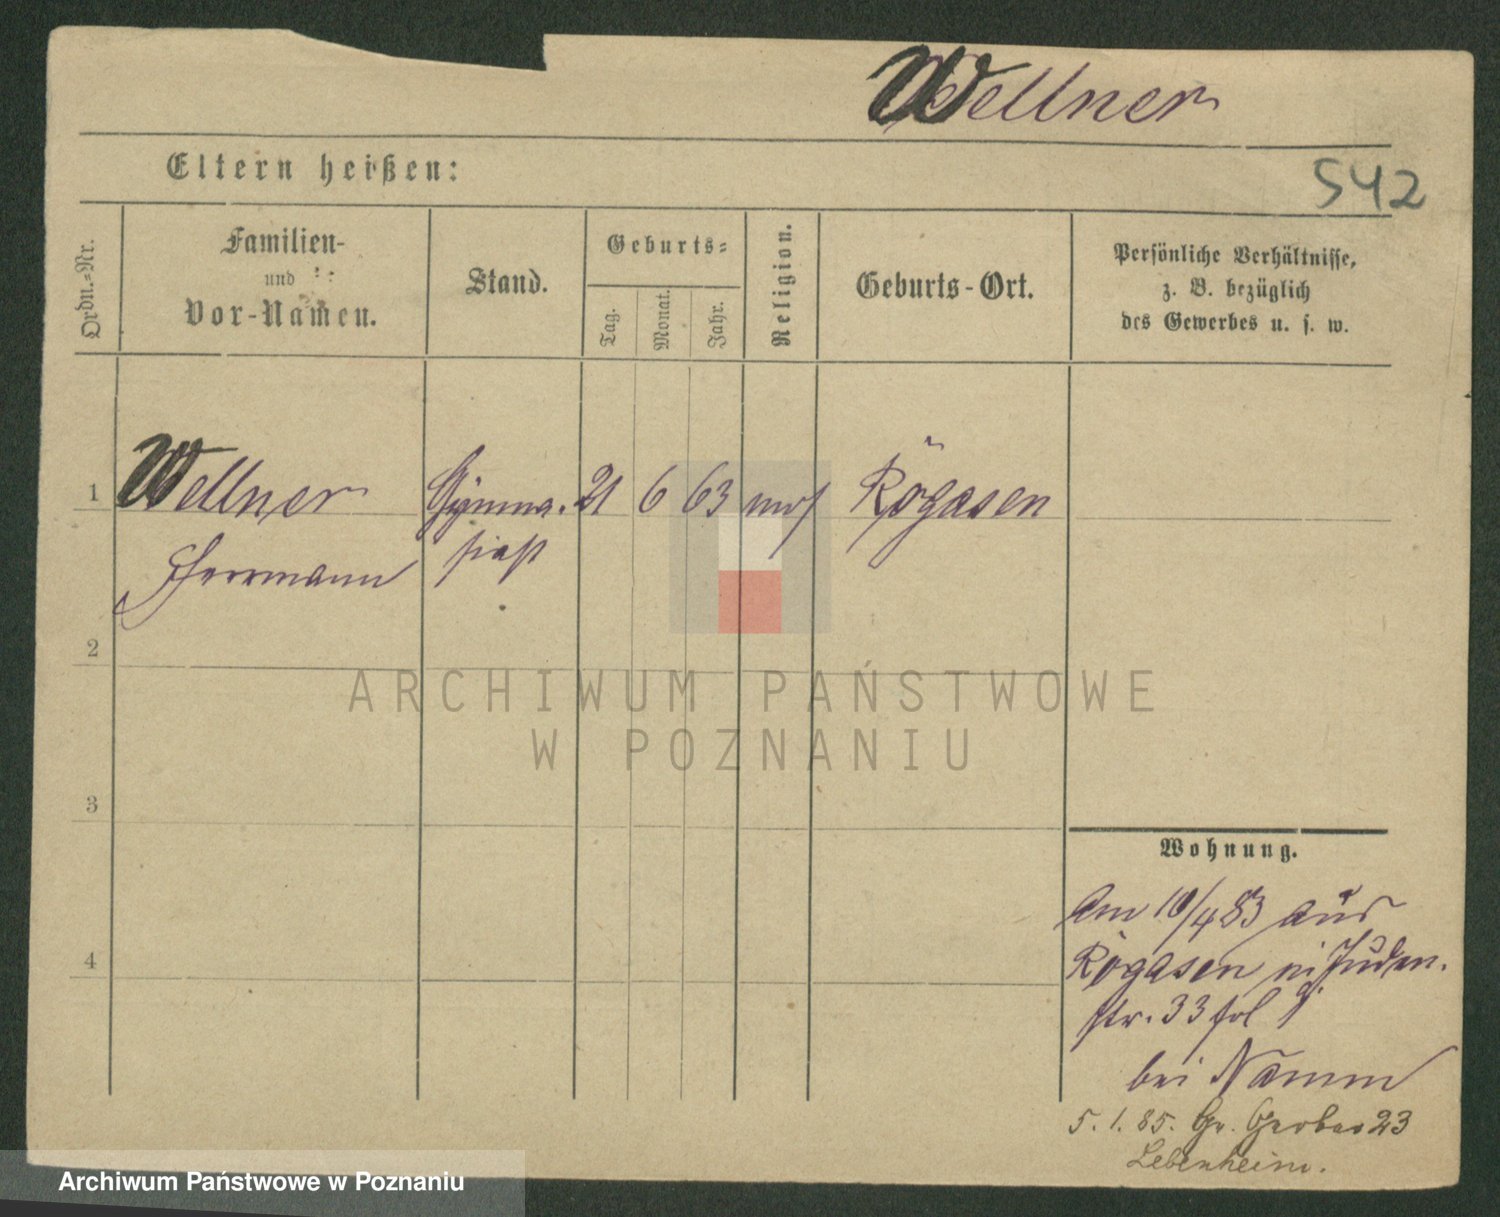 Wellner
Eltern heißen:
542
Ordn.-Nr.
Familien-
und
Vor-Namen.
Stand.
Geburts-
Tag.
Monat.
Jahr.
Religion.
Geburts-Ort.
Persönliche Verhältnisse,
z. B. bezüglich
des Gewerbes u. s. w.
1
Wellner
Herrmann
Gymna-
siast
21
6
63
mos
Rogasen
2
ARCHIWUM PAŃSTWOWE
W POZNANIU
3
4
Wohnung.
Am 10/4 83 aus
Rogasen Juden-
str. 33 fol
bei Namm
5. 1. 85. Gr. Gerber 23
Lebenheim.
Archiwum Państwowe w Poznaniu